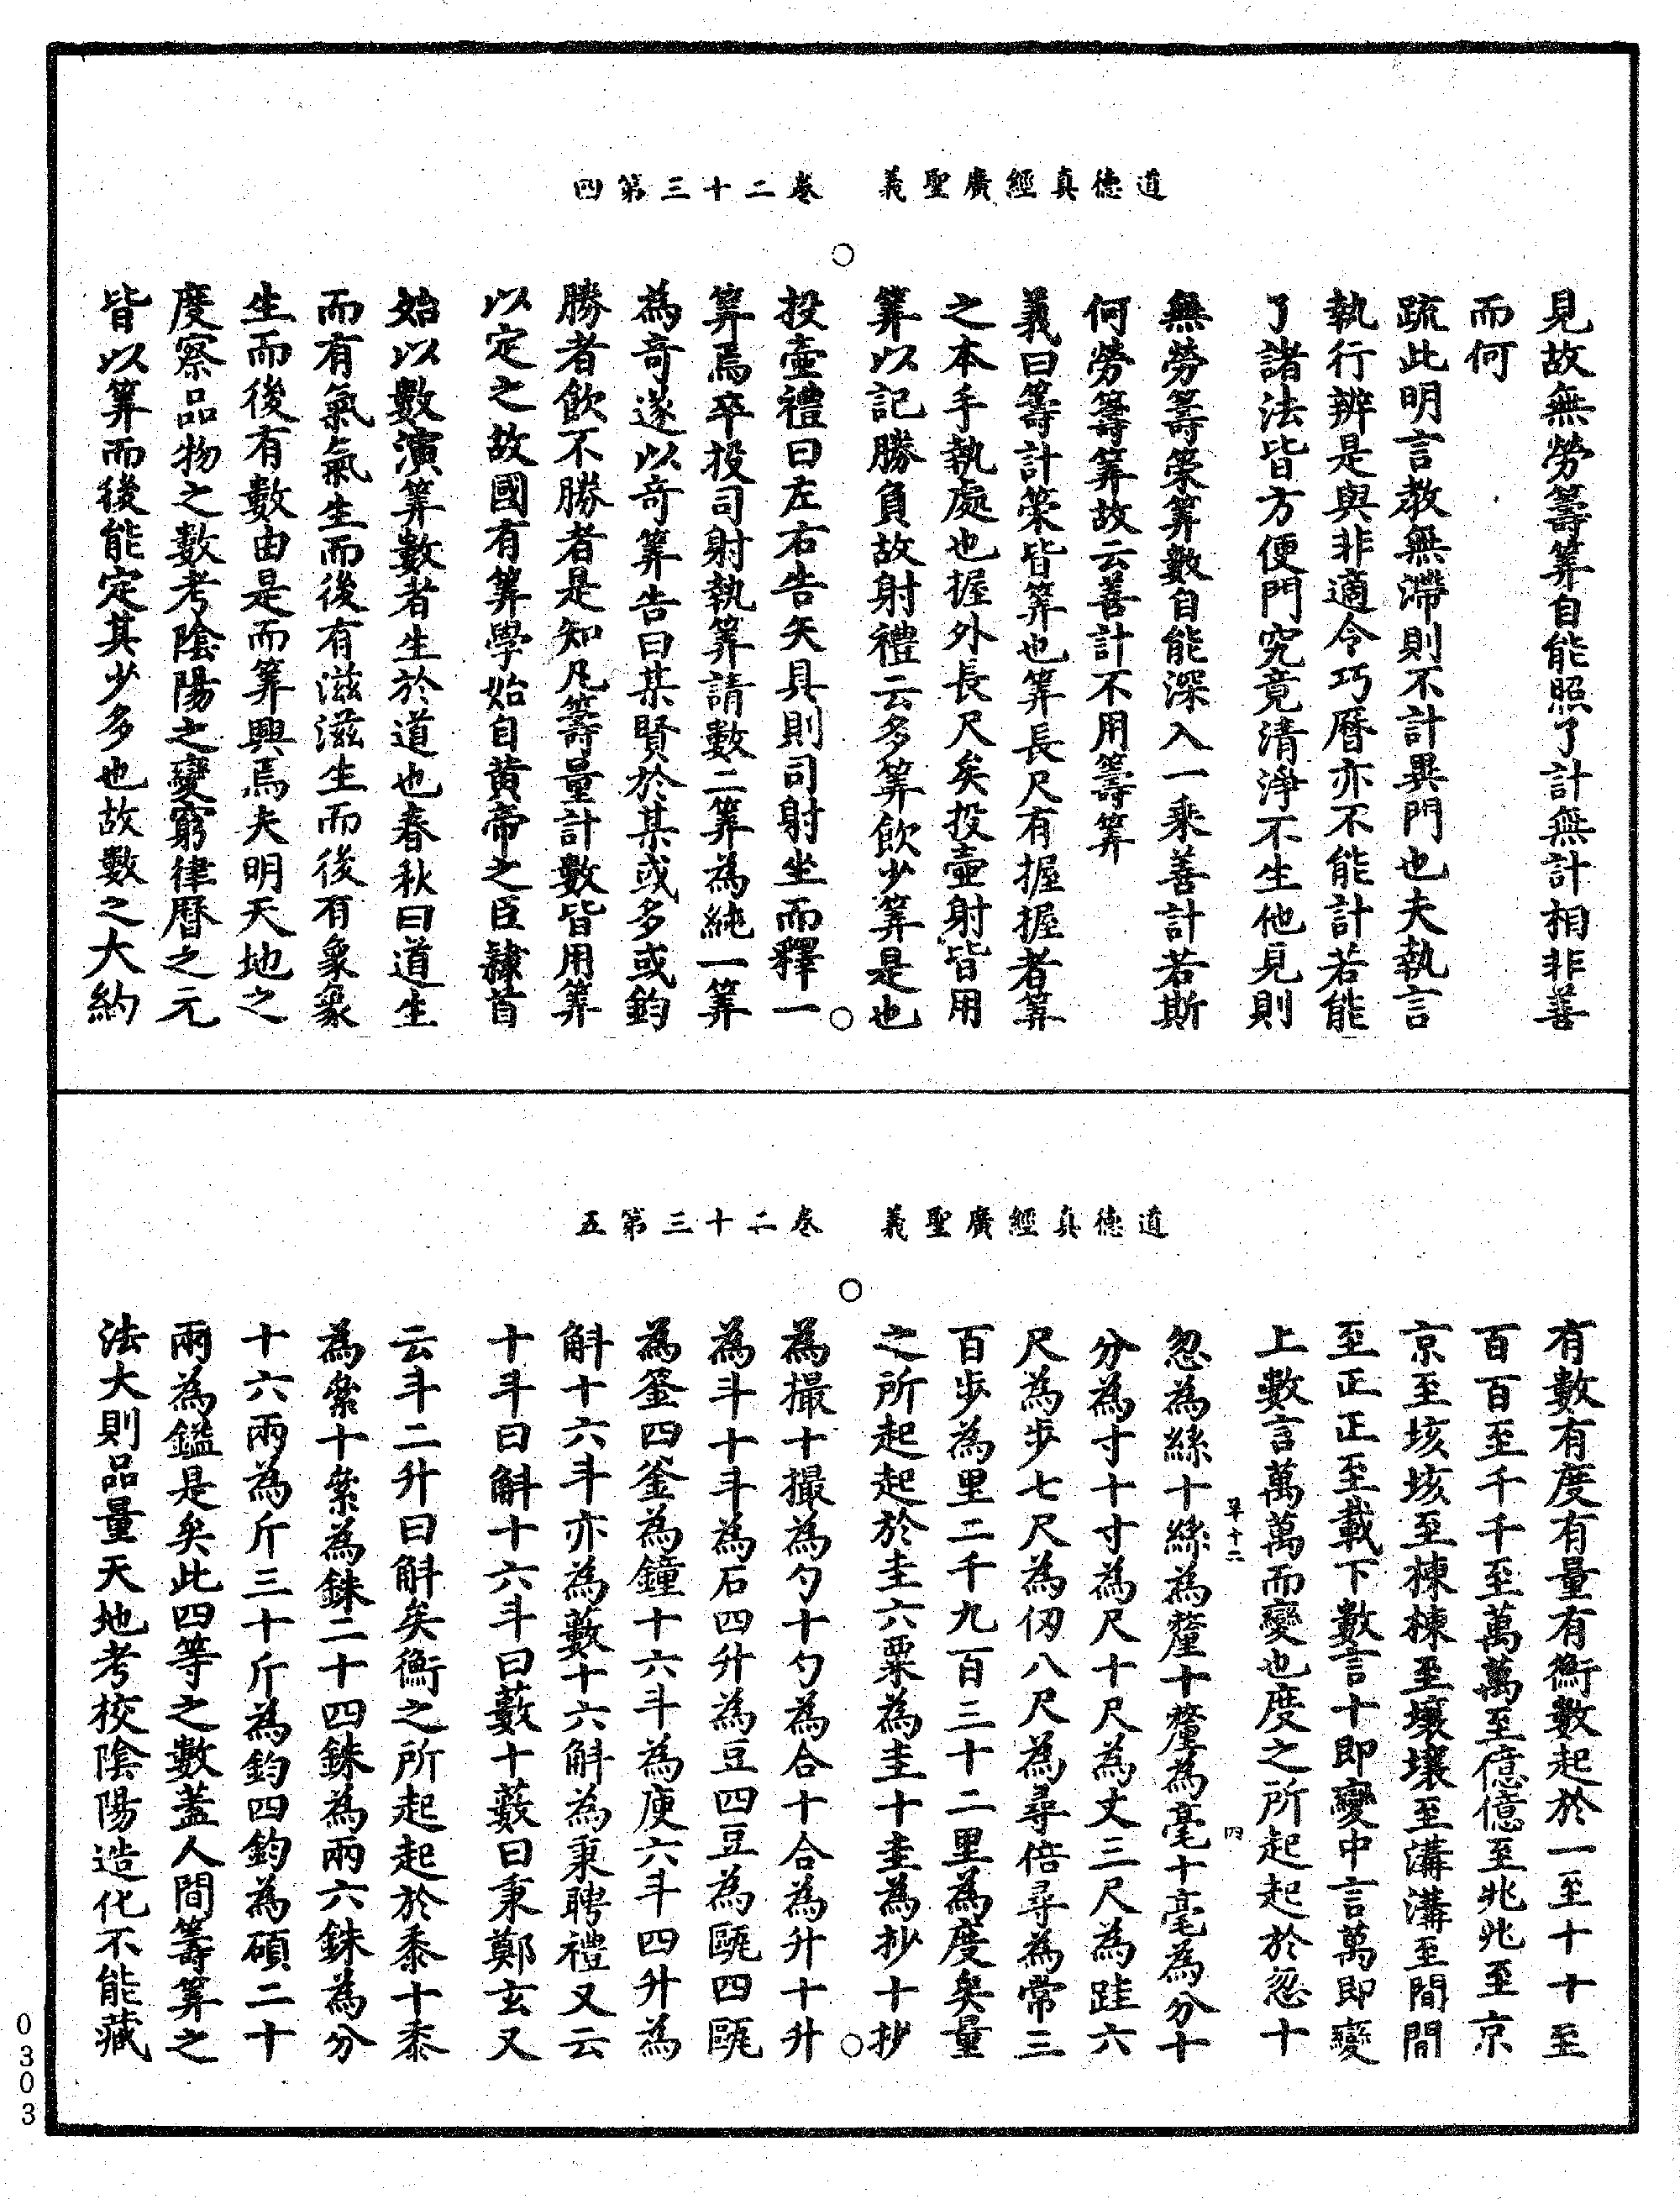 道德真經廣聖義　卷二十三第四
見故無勞籌筭自能照了計無計相非善
而何
疏此明言教無滯則不計異門也夫執言
執行辨是與非適令巧曆亦不能計若能
了諸法皆方便門究竟清淨不生他見則
無勞籌筭筭數自能深入一乘善計若斯
何勞籌筭故云善計不用籌筭
義曰籌計筞皆筭也筭長尺有握握者筭
之本手執處也握外長尺矣投壺射皆用
筭以記勝負故射禮云多筭飲少筭是也
投壺禮曰左右告矢具則司射坐而釋一
筭焉卒投司射執筭請數二筭為純一筭
為奇遂以奇筭告曰某賢於某或多或鈞
勝者飲不勝者是知凡籌量計數皆用筭
以定之故國有筭學始自黃帝之臣隸首
始以數演筭數者生於道也春秋曰道生
而有氣氣生而後有滋滋生而後有象象
生而後有數由是而筭興焉夫明天地之
度察品物之數考陰陽之變窮律曆之元
皆以筭而後能定其少多也故數之大約
道德真經廣聖義　卷二十三第五
有數有度有量有衡數起於一至十十至
百百至千千至萬萬至億億至兆兆至京
京至垓垓至棟棟至壤壤至溝溝至間間
至正正至載下數言十即變中言萬即變
上數言萬萬而變也度之所起起於忽十
草十二　四
忽為絲十絲為釐十釐為毫十毫為分十
分為寸十寸為尺十尺為丈三尺為跬六
尺為步七尺為仞八尺為尋倍尋為常三
百步為里二千九百三十二里為度矣量
之所起起於圭六粟為圭十圭為抄十抄
為撮十撮為勺十勺為合十合為升十升
為斗十斗為石四升為豆四豆為甌四甌
為釜四釜為鐘十六斗為庾六斗四升為
斛十六斗亦為藪十六斛為秉聘禮又云
十斗曰斛十六斗曰藪十藪曰秉鄭玄又
云斗二升曰斛矣衡之所起起於黍十黍
為絫十絫為銖二十四銖為兩六銖為分
十六兩為斤三十斤為鈞四鈞為碩二十
兩為鎰是矣此四等之數蓋人間籌筭之
法大則品量天地考校陰陽造化不能藏
0303